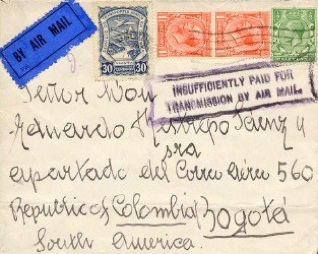 BY AIR MAIL
30 30
INSUFFICIENTLY PAID FOR
TRANSMISSION BY AIR MAIL.
Señor Don
Eduardo Restrepo Saenz y
sra
apartado del Correo Aéreo 560
Republic of Colombia Bogotá
South America.